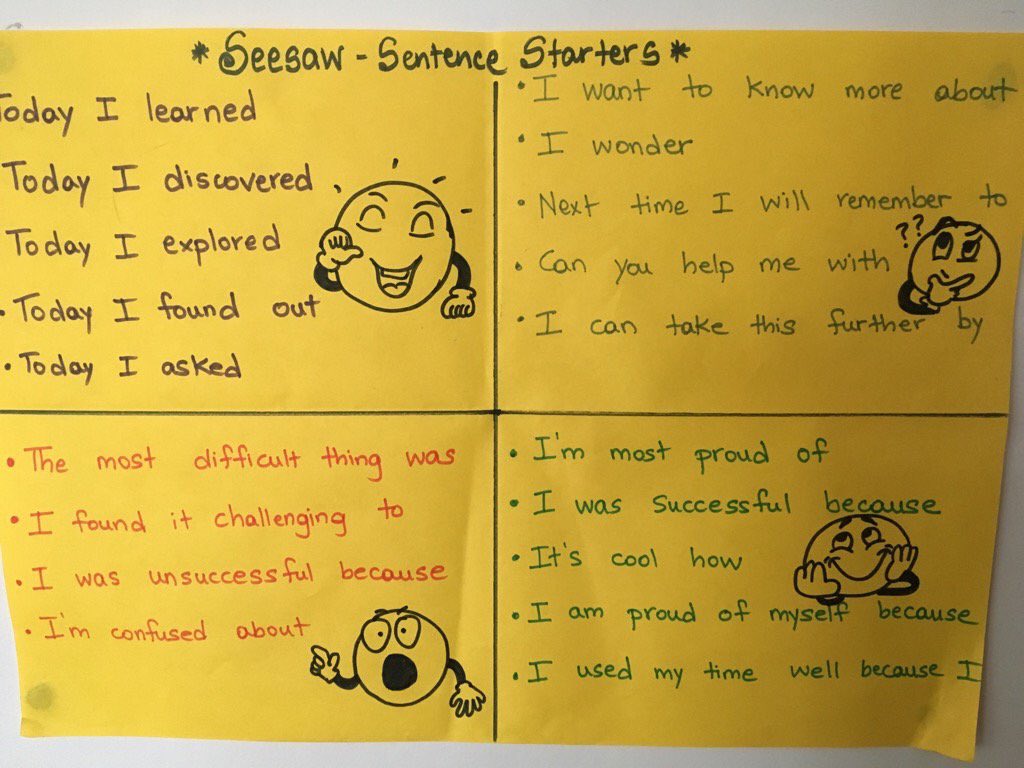 * Seesaw - Sentence Starters *
Today I learned
Today I discovered
Today I explored
• Today I found out
• Today I asked
• I want to know more about
• I wonder
• Next time I will remember to
??
• Can you help me with
• I can take this further by
• The most difficult thing was
• I found it challenging to
• I was unsuccessful because
• I'm confused about
• I'm most proud of
• I was successful because
• It's cool how
• I am proud of myself because
• I used my time well because I